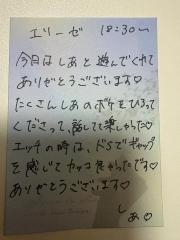 エリーゼ 18:30〜
今日はしあと遊んでくれて
ありがとうございます♡
たくさんしあのボケをひろって
くださって、話してて楽しかった♡
エッチの時は、ドSでギャップ
を感じてカッコ良かったです♡
ありがとうございます♡
しあ♡